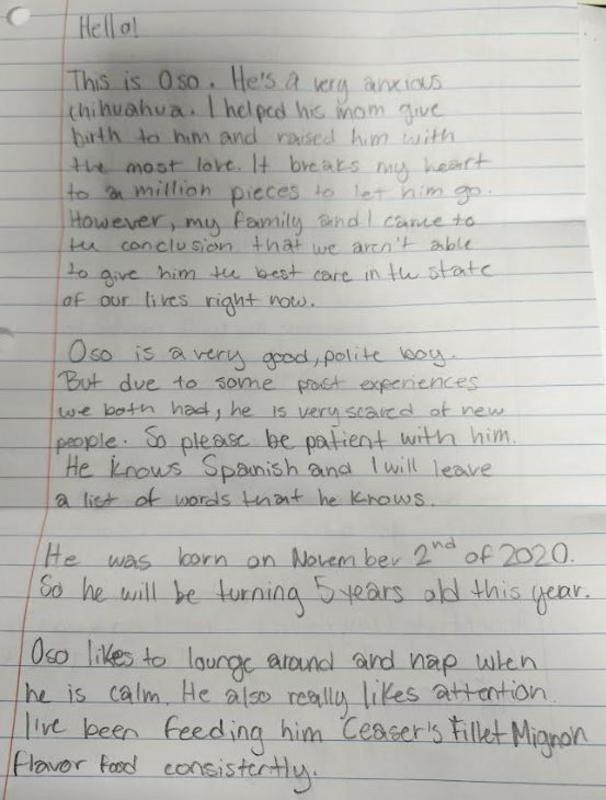 Hello!
This is Oso. He's a very anxious
chihuahua. I helped his mom give
birth to him and raised him with
the most love. It breaks my heart
to a million pieces to let him go.
However, my family and I came to
the conclusion that we aren't able
to give him the best care in the state
of our lives right now.
Oso is a very good, polite boy.
But due to some past experiences
we both had, he is very scared of new
people. So please be patient with him.
He knows Spanish and I will leave
a list of words that he knows.
He was born on November 2nd of 2020.
So he will be turning 5 years old this year.
Oso likes to lounge around and nap when
he is calm. He also really likes attention.
I've been feeding him Ceaser's Fillet Mignon
flavor food consistently.